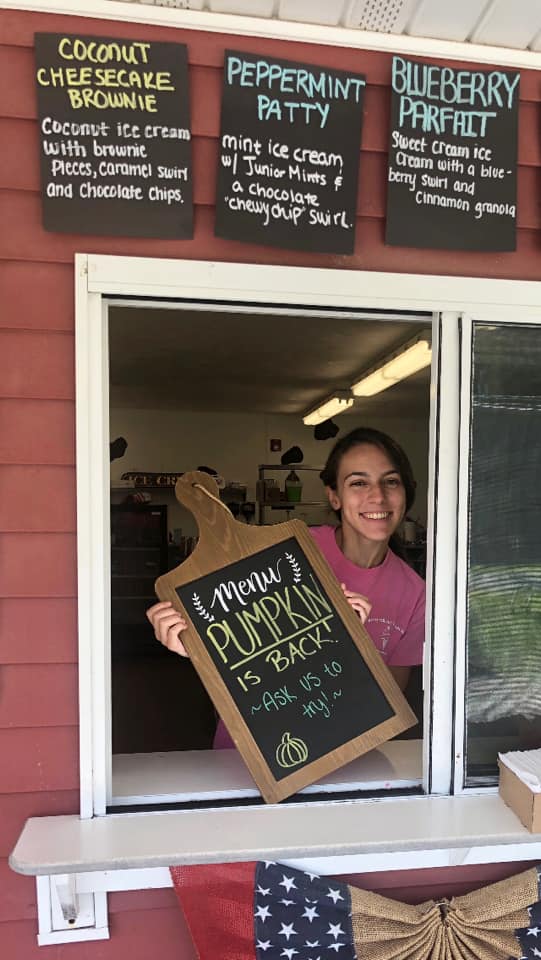 COCONUT
CHEESECAKE
BROWNIE
Coconut ice cream
with brownie
Pieces, Caramel swirl
and Chocolate Chips.
PEPPERMINT
PATTY
mint ice cream
w/ Junior Mints &
a chocolate
"chewy chip" swirl.
BLUEBERRY
PARFAIT
Sweet Cream ice
Cream with a blue-
berry swirl and
Cinnamon granola
ICE CRE
Menu
PUMPKIN
IS BACK.
~ASK US to
try!~